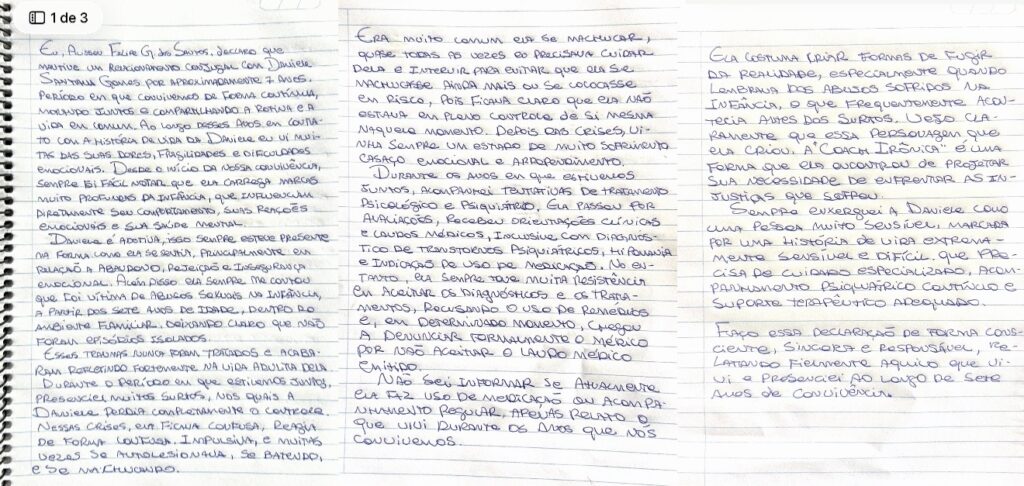 1 de 3
Eu, Felipe G. dos Santos, declaro que
mantive um relacionamento conjugal com Daniele
Santana Gomes por aproximadamente 7 anos,
período em que convivemos de forma contínua,
morando juntos e compartilhando a rotina e a
vida em comum. Ao longo desses anos em conta-
to com a história de vida da Daniele eu vi mui-
tas das suas dores, fragilidades e dificuldades
emocionais. Desde o início da nossa convivência,
sempre foi fácil notar que ela carrega marcas
muito profundas da infância, que influenciam
diretamente seu comportamento, suas reações
emocionais e sua saúde mental.
Daniele é adotiva, isso sempre esteve presente
na forma como ela se sentia, principalmente em
relação a abandono, rejeição e insegurança
emocional. Além disso ela sempre me contou
que foi vítima de abusos sexuais na infância,
a partir dos sete anos de idade, dentro do
ambiente familiar, deixando claro que não
foram episódios isolados.
Esses traumas nunca foram tratados e acaba-
ram refletindo fortemente na vida adulta dela.
Durante o período em que estivemos juntos,
presenciei muitos surtos, nos quais a
Daniele perdia completamente o controle.
Nessas crises, ela ficava confusa, reagia
de forma confusa, impulsiva, e muitas
vezes se autolesionava, se batendo,
e se machucando.
Era muito comum ela se machucar,
quase todas as vezes eu precisava cuidar
dela e intervir para evitar que ela se
machucasse ainda mais ou se colocasse
em risco, pois ficava claro que ela não
estava em pleno controle de si mesma
naquele momento. Depois das crises, vi-
nha sempre um estado de muito sofrimento
casaço emocional e arrependimento.
Durante os anos em que estivemos
juntos, acompanhei tentativas de tratamento
psicológico e psiquiátrico, ela passou por
avaliações, recebeu orientações clínicas
e laudos médicos, inclusive com diagnós-
tico de transtornos psiquiátricos,
e indicação de uso de medicação. No en-
tanto, ela sempre teve muita resistência
em aceitar os diagnósticos e os trata-
mentos, recusando o uso de remédios
e, em determinado momento, chegou
a denunciar formalmente o médico
por não aceitar o laudo médico
emitido.
Não sei informar se atualmente
ela faz uso de medicação ou acompa-
nhamento regular, apenas relato o
que vivi durante os anos que nós
convivemos.
Ela costuma criar formas de fugir
da realidade, especialmente quando
lembrava dos abusos sofridos na
infância, o que frequentemente acon-
tecia antes dos surtos. Vejo cla-
ramente que essa personagem que
ela criou, a "Coach Irônica" é uma
forma que ela encontrou de projetar
sua necessidade de enfrentar as in-
justiças que sofreu.
Sempre enxerguei a Daniele como
uma pessoa muito sensível, marcada
por uma história de vida extrema-
mente sensível e difícil, que pre-
cisa de cuidado especializado, acom-
panhamento psiquiátrico contínuo e
suporte terapêutico adequado.
Faço essa declaração de forma cons-
ciente, sincera e responsável, re-
latando fielmente aquilo que vi-
vi e presenciei ao longo de sete
anos de convivência.